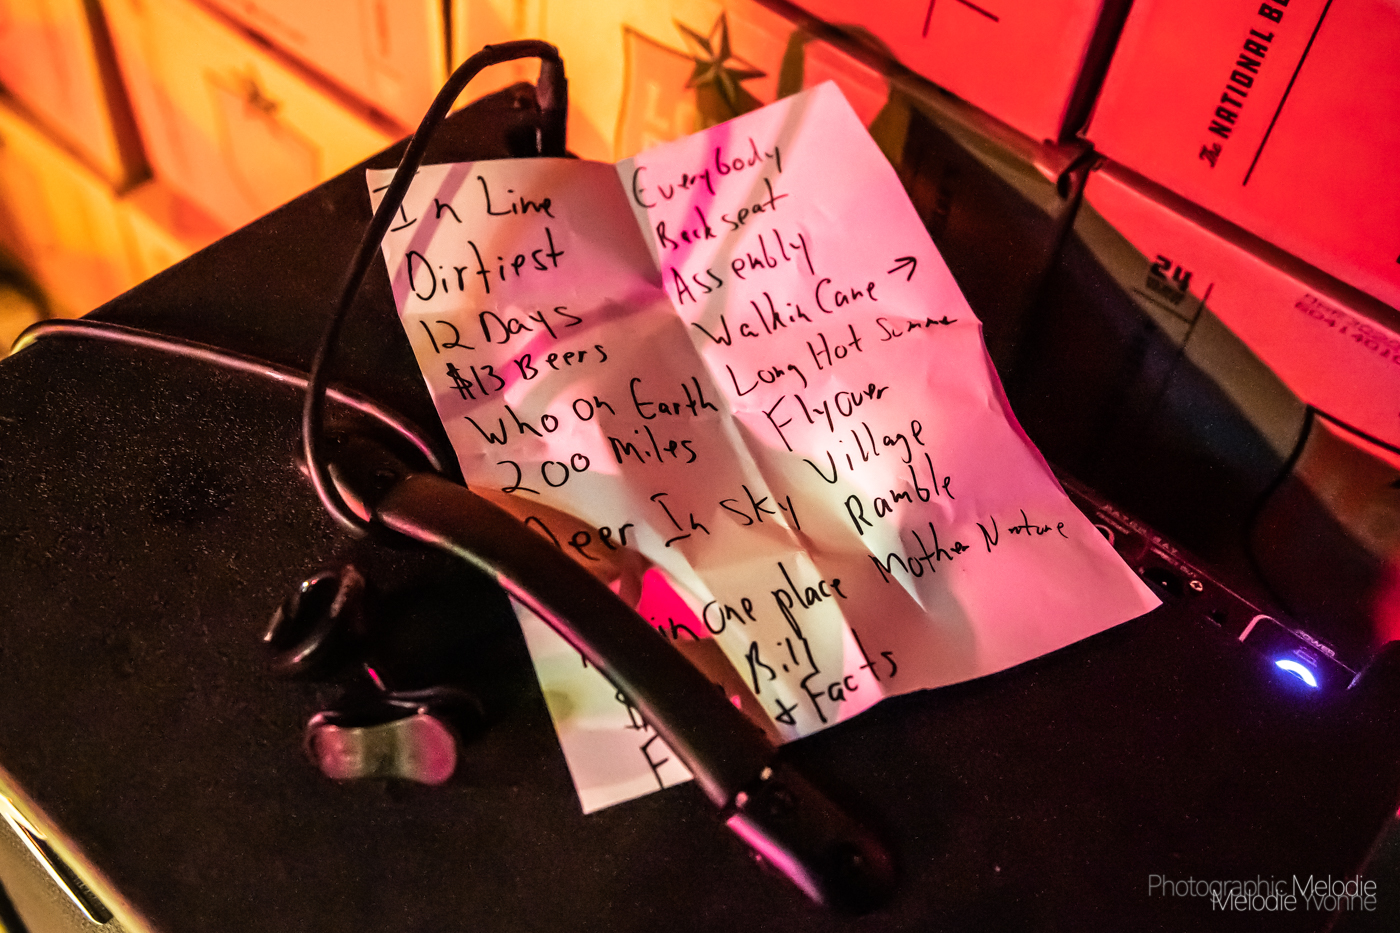 In Line
Dirtiest
12 Days
$13 Beers
Who On Earth
200 Miles
Deer In Sky
in one place
Bill
$
F
+ Facts
Everybody
Backseat
Assembly
Walkin Cane →
Long Hot Summer
Flyover
Village
Ramble
Mother Nature
The NATIONAL BE
24
POWER
Photographic Melodie
Melodie Yvonne